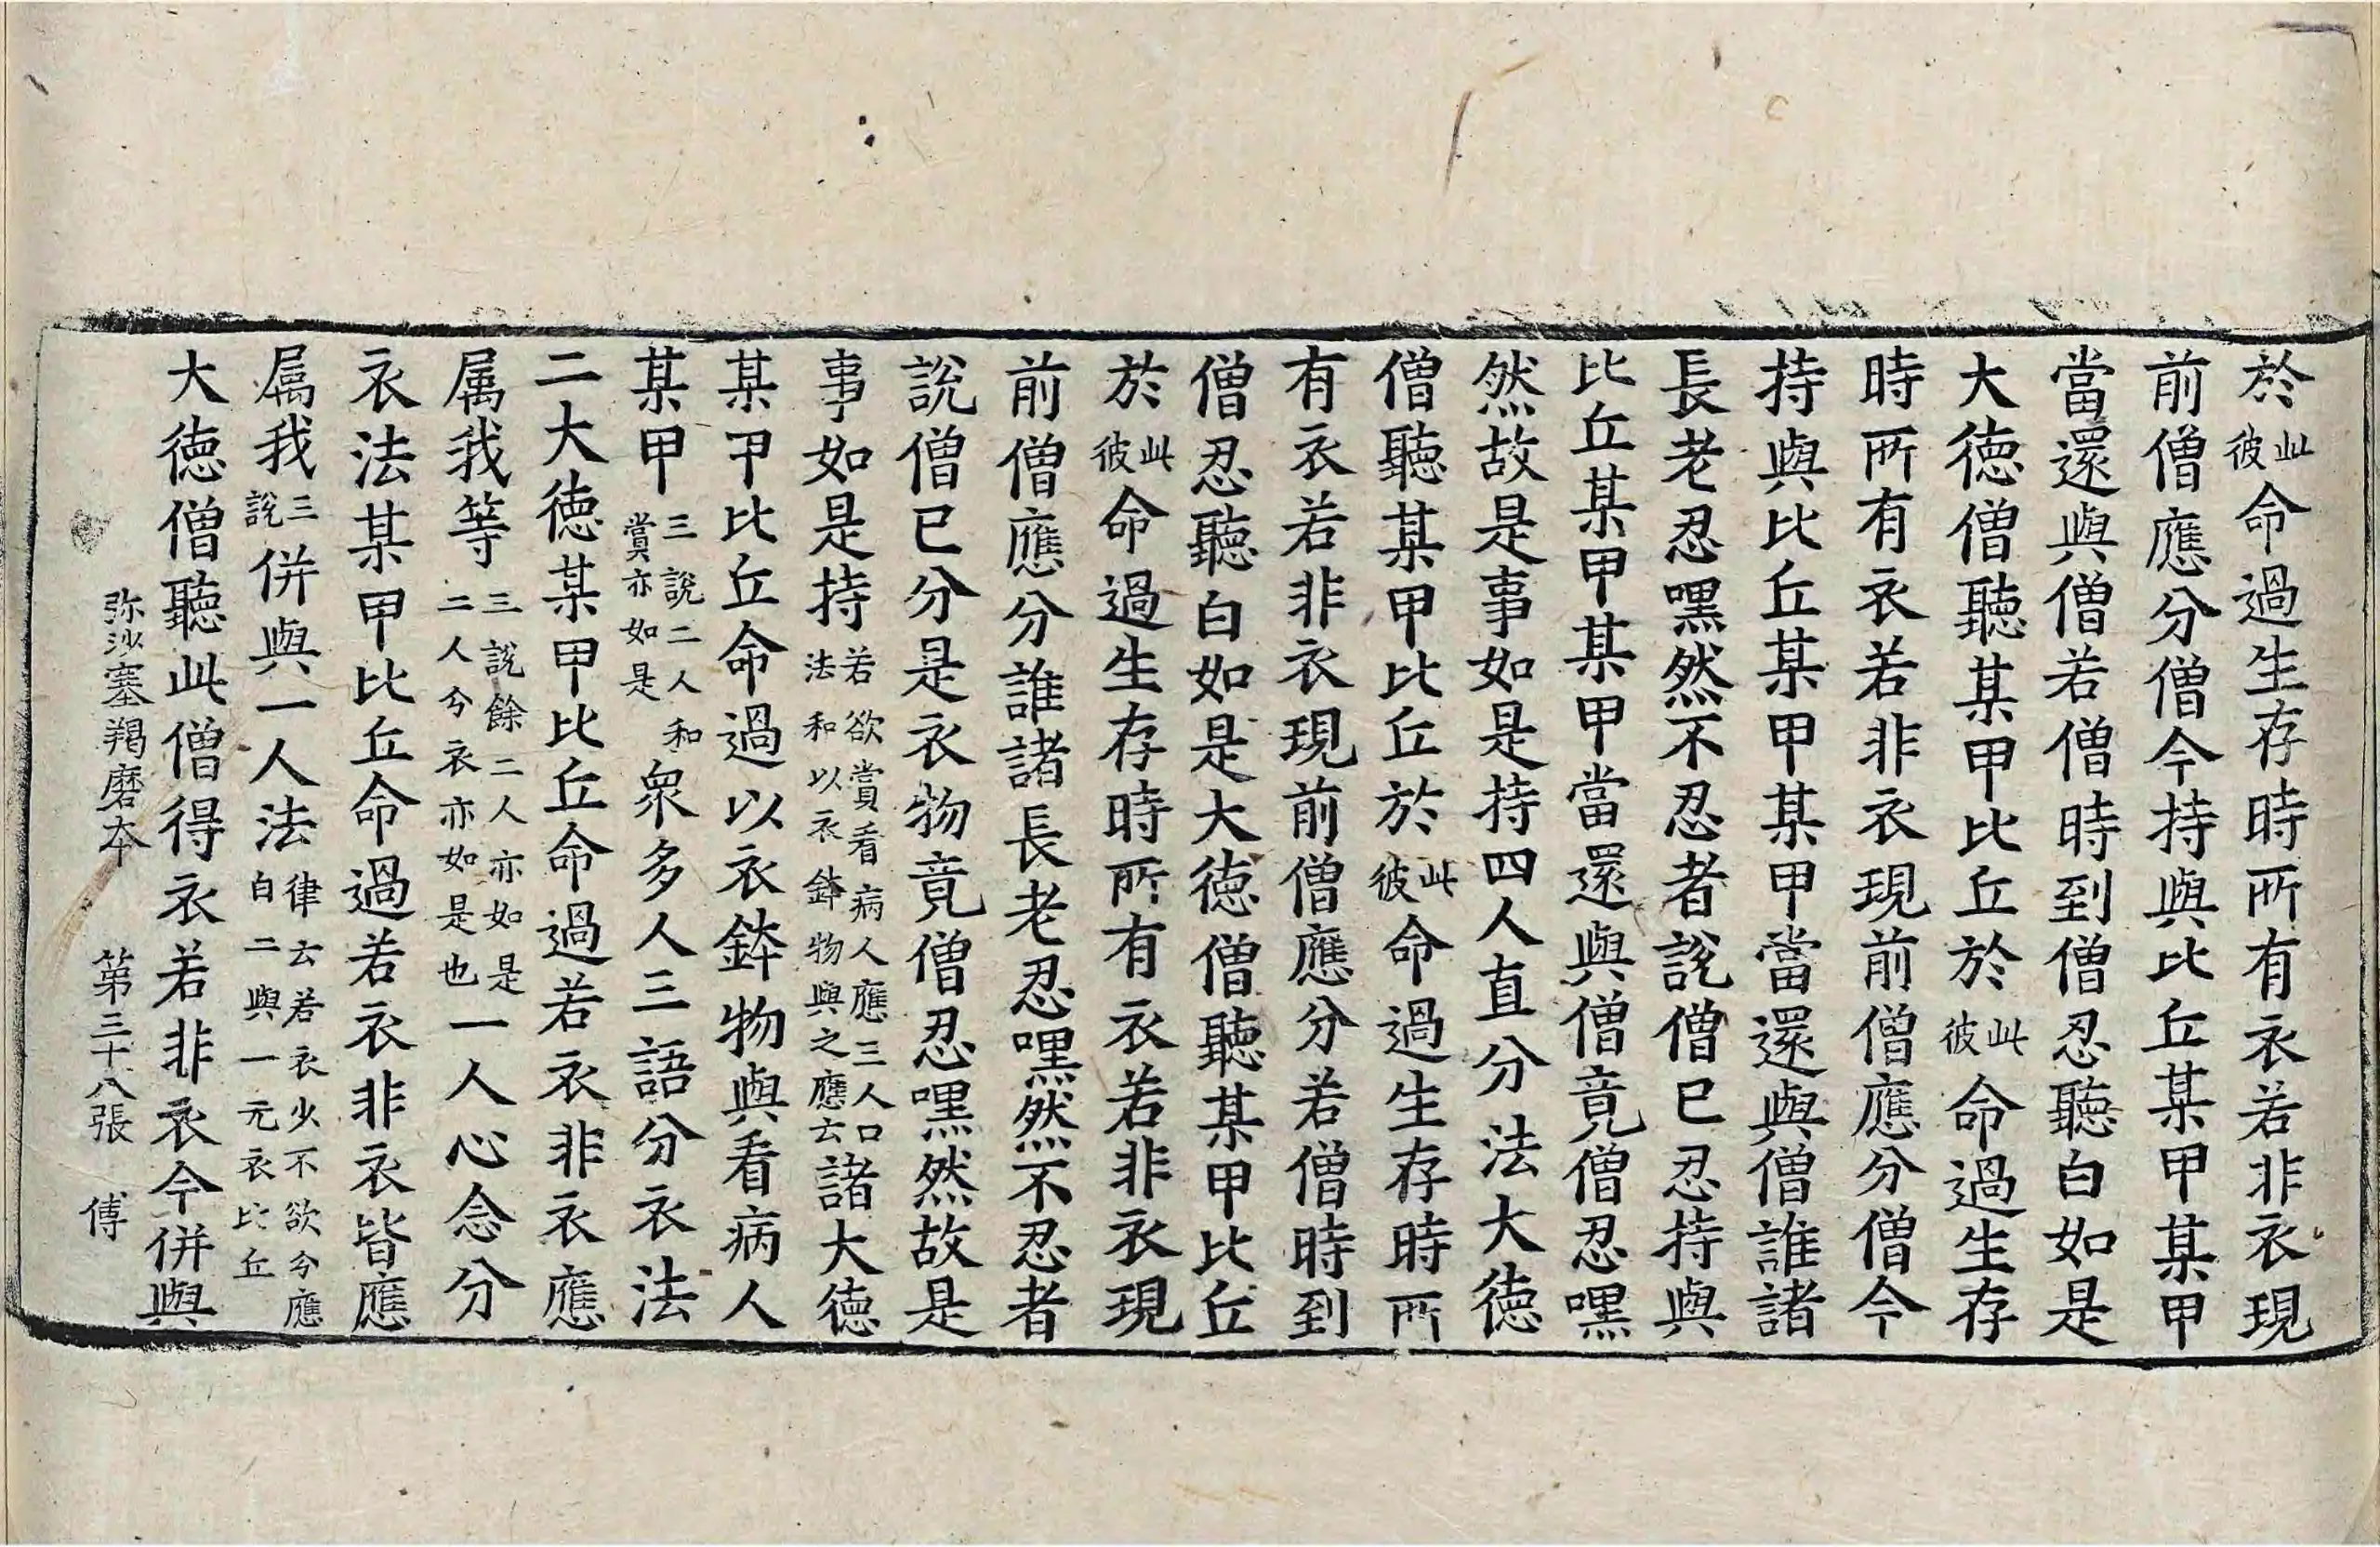 於此彼命過生存時所有衣若非衣現
前僧應分僧今持與比丘某甲某甲
當還與僧若僧時到僧忍聽白如是
大德僧聽某甲比丘於此彼命過生存
時所有衣若非衣現前僧應分僧今
持與比丘某甲某甲當還與僧誰諸
長老忍嘿然不忍者說僧已忍持與
比丘某甲某甲當還與僧竟僧忍嘿
然故是事如是持四人直分法大德
僧聽某甲比丘於此彼命過生存時所
有衣若非衣現前僧應分若僧時到
僧忍聽白如是大德僧聽某甲比丘
於此彼命過生存時所有衣若非衣現
前僧應分誰諸長老忍嘿然不忍者
說僧已分是衣物竟僧忍嘿然故是
事如是持若欲賞看病人應三人口法和以衣鉢物與之應云諸大德
某甲比丘命過以衣鉢物與看病人
某甲三說二人和賞亦如是眾多人三語分衣法
二大德某甲比丘命過若衣非衣應
属我等三說餘二人亦如是二人分衣亦如是也一人心念分
衣法某甲比丘命過若衣非衣皆應
属我三說併與一人法律云若衣少不欲分應白二與一无衣比丘
大德僧聽此僧得衣若非衣今併與
弥沙塞羯磨本 第三十八張 傅